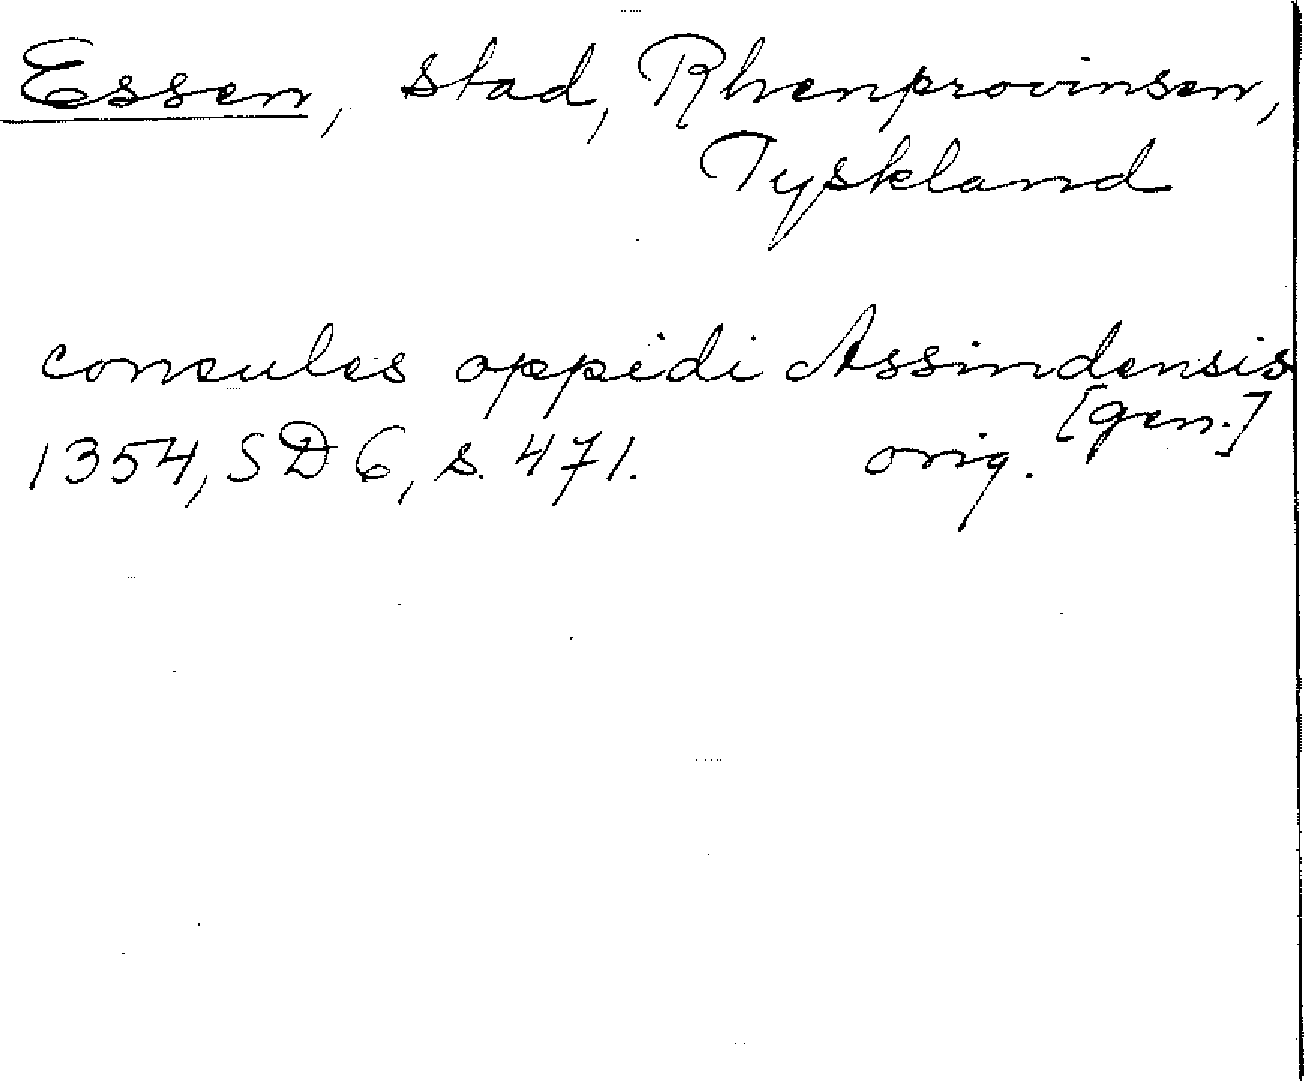 Essen, stad, Rhenprovinsen,
Tyskland
consules oppidi Assindensis
[gen.]
1354, SD 6, s. 471. orig.